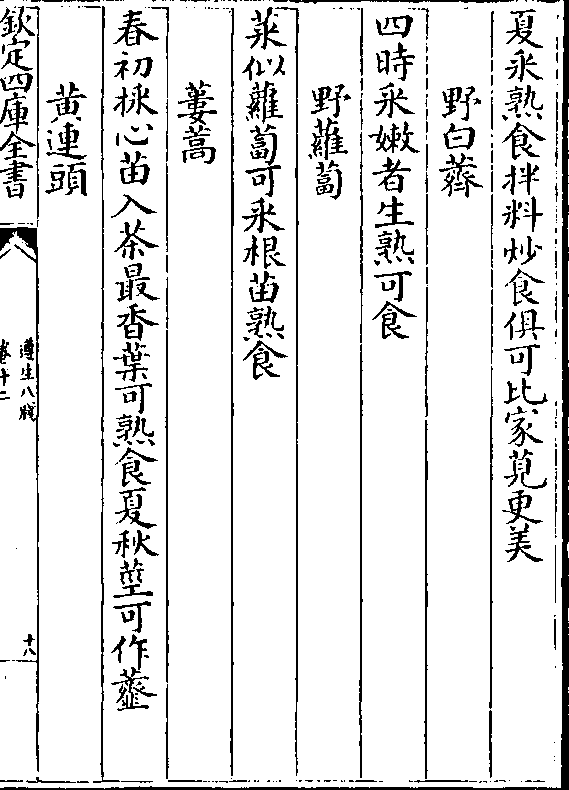 夏采熟食拌料炒食俱可比家莧更美
野白薺
四時采嫩者生熟可食
野蘿蔔
菜似蘿蔔可采根苗熟食
蔞蒿
春初採心苗入茶最香葉可熟食夏秋莖可作虀
黃連頭
欽定四庫全書
遵生八牋
卷十二
十八